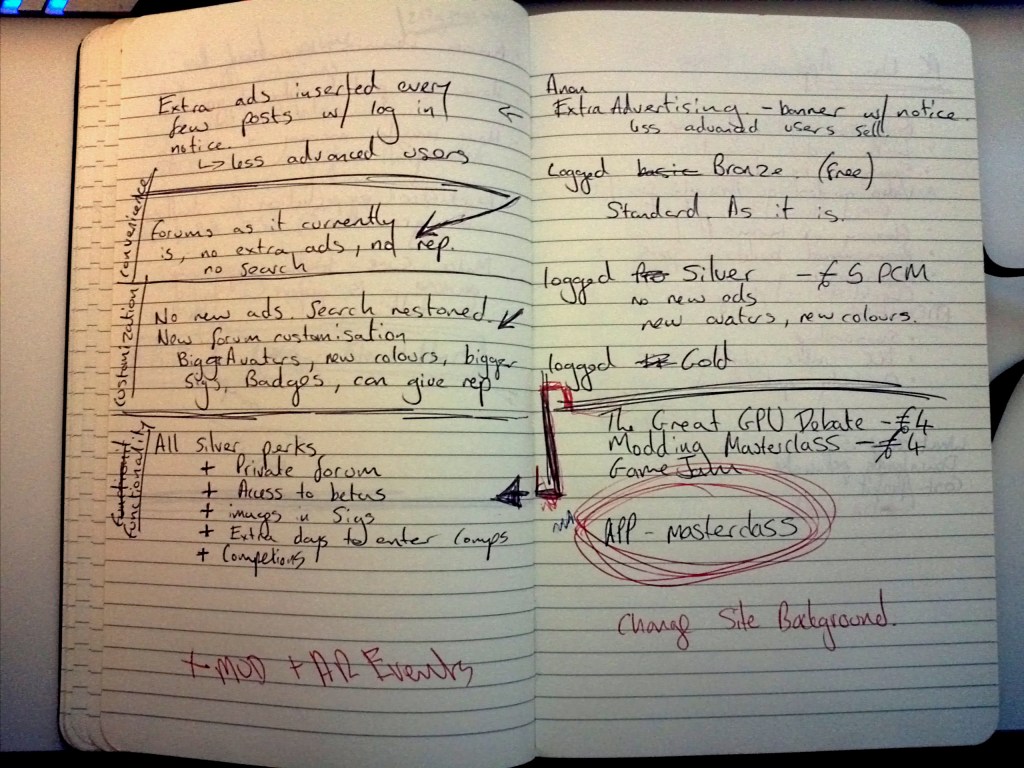 Extra ads inserted every
few posts w/ log in
notice.
↳ less advanced users
convenience
Forums as it currently
is, no extra ads, no rep.
no search
customization
No new ads. Search restored.
New forum customisation
Bigg Avatars, new colours, bigger
Sigs, Badges, can give rep
functionality
All silver perks
+ Private forum
+ Access to betas
+ images in Sigs
+ Extra days to enter comps
+ Competions
+ MOD + AR Events
Anon
Extra Advertising - banner w/ notice.
less advanced users sell.
Logged basic Bronze. (free)
Standard. As it is.
logged Silver - £5 PCM
no new ads
new avatars, new colours.
logged Gold
The Great GPU Debate - £4
Modding Masterclass - £4
Game Jam
APP - masterclass
Change Site Background.